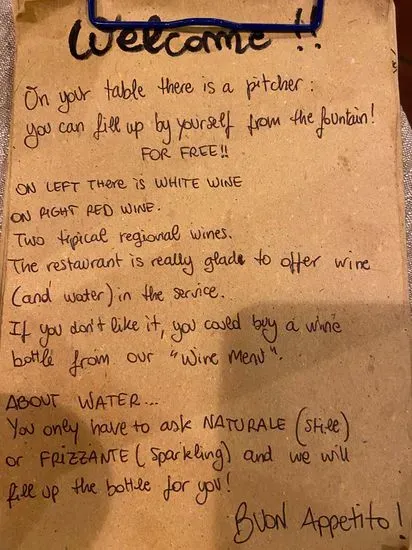 Welcome!!
On your table there is a pitcher:
you can fill up by yourself from the fountain!
FOR FREE!!
ON LEFT THERE IS WHITE WINE
ON RIGHT RED WINE.
TWO tipical regional wines.
The restaurant is really glade to offer wine
(and water) in the service.
If you don't like it, you could buy a wine
bottle from our "Wine Menu".
ABOUT WATER...
You only have to ask NATURALE (still)
or FRIZZANTE (sparkling) and we will
fill up the bottle for you!
BUON Appetito!